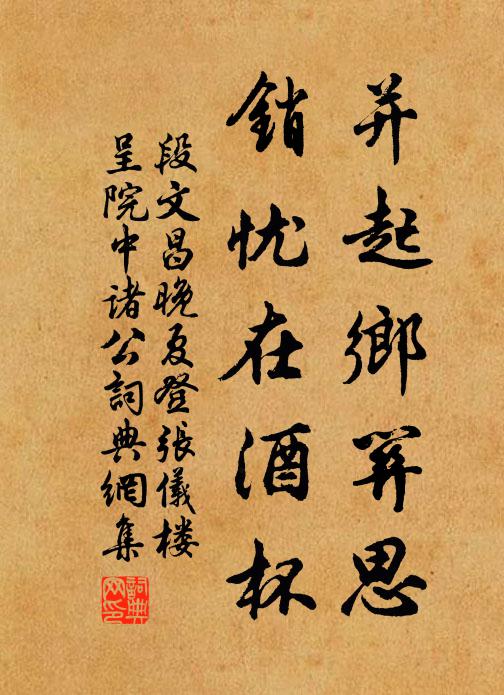 并起鄉關思
銷忧在酒杯
段文昌晚夏登張儀楼
呈院中诸公詞典網集
詞典网印